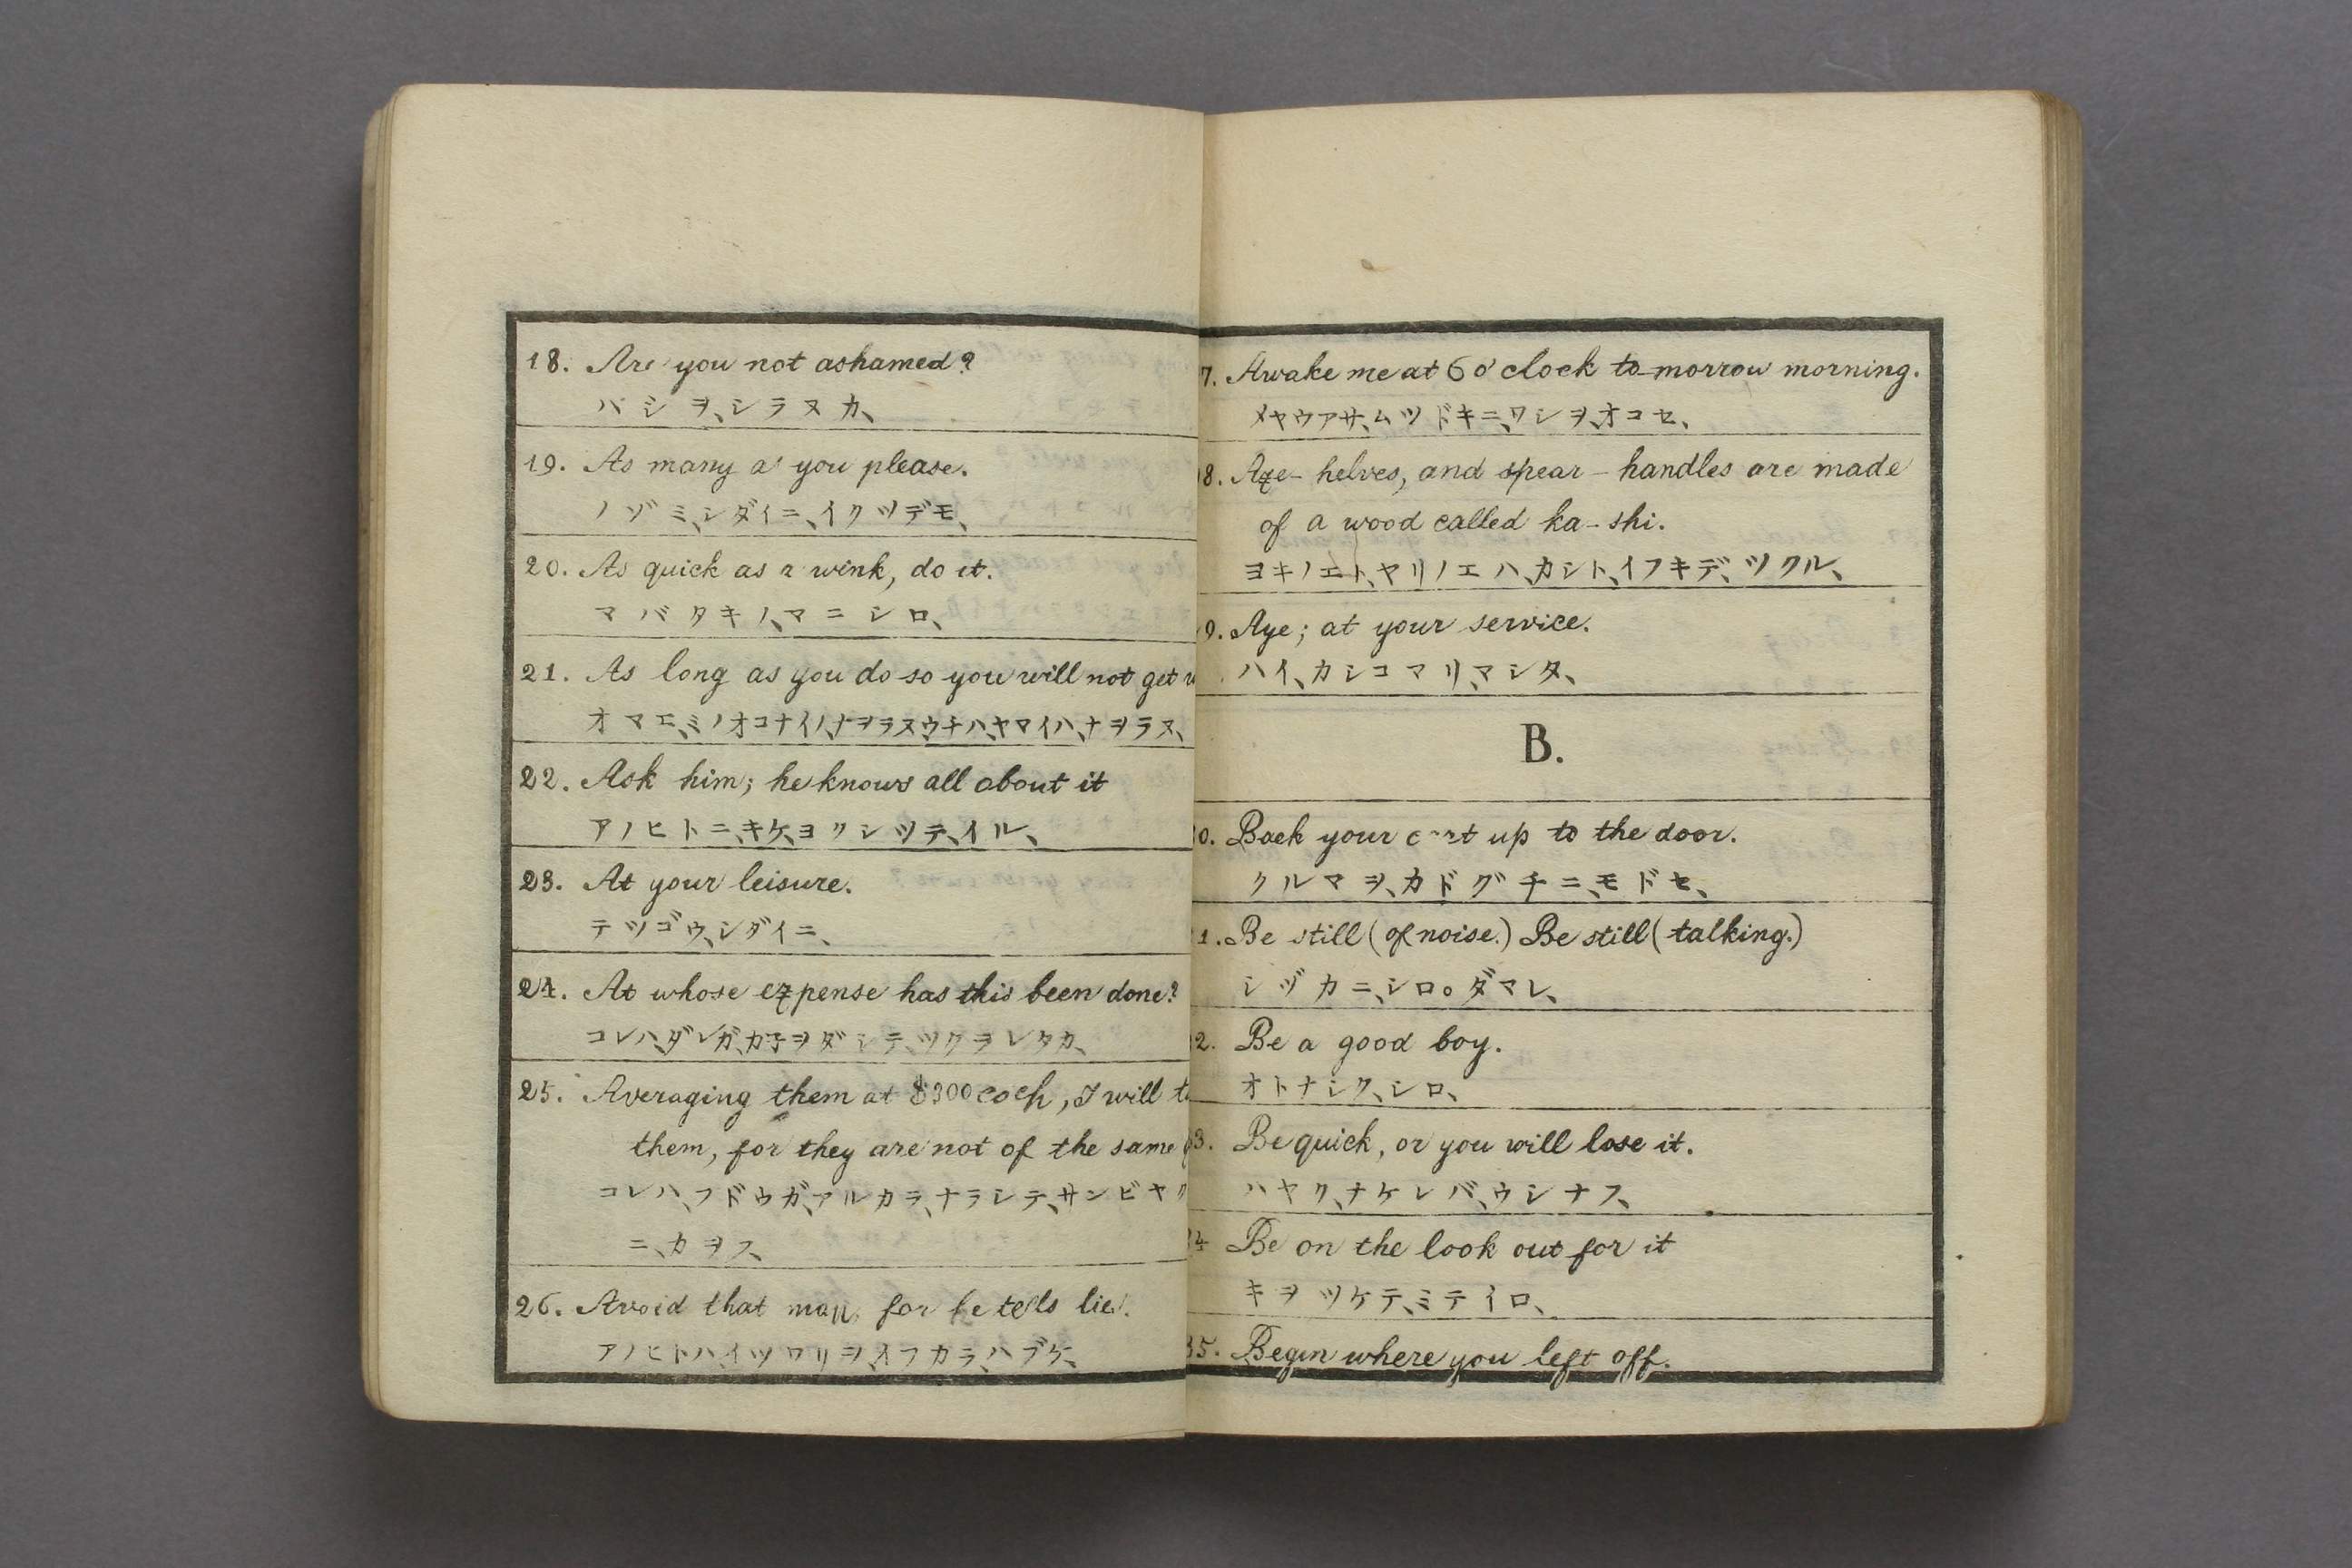 18. Are you not ashamed?
バシヲ、シラヌカ、
19. As many as you please.
ノゾミ、シダイニ、イクツデモ、
20. As quick as a wink, do it.
マバタキノ、マニシロ、
21. As long as you do so you will not get
オマエ、ミノオコナイノ、ナヲラヌウチハ、ヤマイハ、ナヲラヌ、
22. Ask him; he knows all about it
アノヒトニ、キケ、ヨクシツテ、イル、
23. At your leisure.
テツゴウ、シダイニ、
24. At whose expense has this been done?
コレハ、ダレガ、カ子ヲダシテ、ツクヲレタカ、
25. Averaging them at $300 each, I will
them, for they are not of the same
コレハ、フドウガ、アルカラ、ナラシテ、サンビヤク
ニ、カヲフ、
26. Avoid that man, for he tells lies.
アノヒトハ、イツワリヲ、イフカラ、ハブケ、
7. Awake me at 6 o'clock to-morrow morning.
メヤウアサ、ムツドキニ、ワシヲ、オコセ、
8. Axe-helves, and spear-handles are made
of a wood called ka-shi.
ヨキノエト、ヤリノエハ、カシト、イフキデ、ツクル、
9. Aye; at your service.
ハイ、カシコマリ、マシタ、
B.
0. Back your cart up to the door.
クルマヲ、カドグチニ、モドセ、
1. Be still (of noise.) Be still (talking.)
シヅカニ、シロ。ダマレ、
2. Be a good boy.
オトナシク、シロ、
3. Be quick, or you will lose it.
ハヤク、ナケレバ、ウシナフ、
4 Be on the look out for it
キヲツケテ、ミテイロ、
35. Begin where you left off.